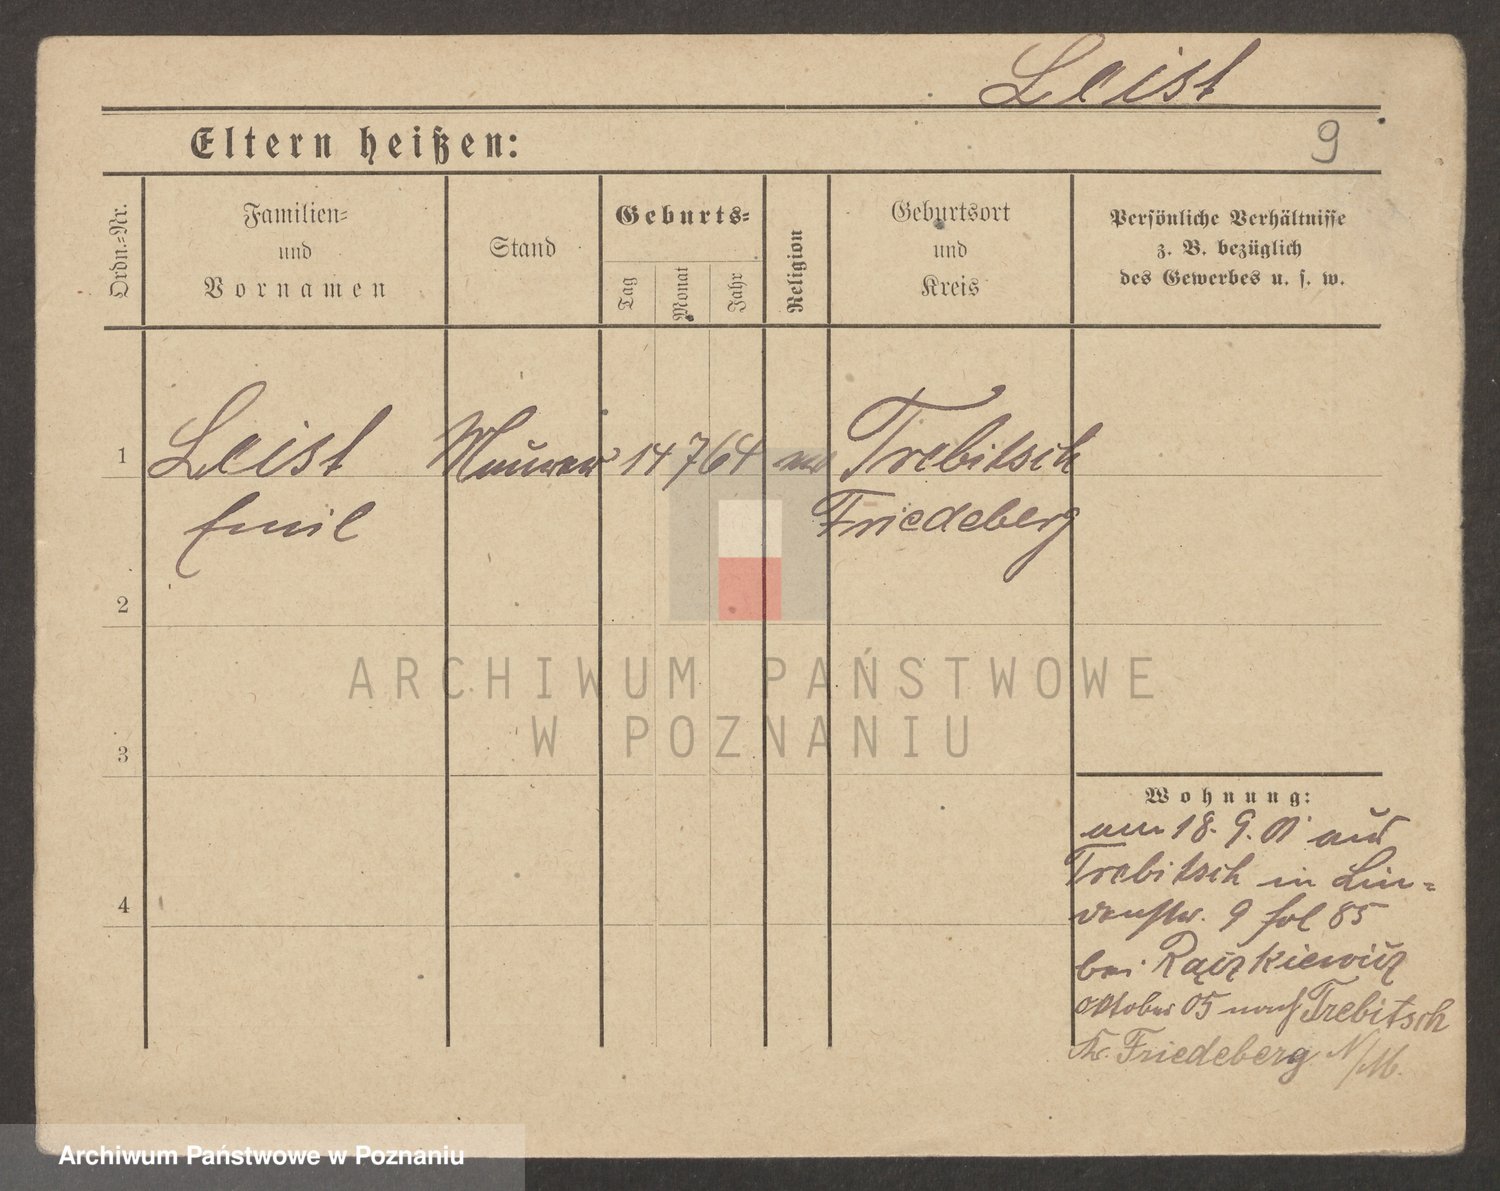 Leist
Eltern heißen:
9
Ordn.=Nr.
Familien=
und
Vornamen
Stand
Geburts=
Tag
Monat
Jahr
Religion
Geburtsort
und
Kreis
Persönliche Verhältnisse
z. B. bezüglich
des Gewerbes u. s. w.
1
Leist Maurer 14 7 64 Trebitsch
Emil Friedeberg
2
3
4
Wohnung:
am 18. 9. 01 aus
Trebitsch in Lin=
denstr. 9 fol 85
bei Rączkiewicz
Oktober 05 nach Trebitsch
Kr. Friedeberg N/M.
ARCHIWUM PAŃSTWOWE
W POZNANIU
Archiwum Państwowe w Poznaniu